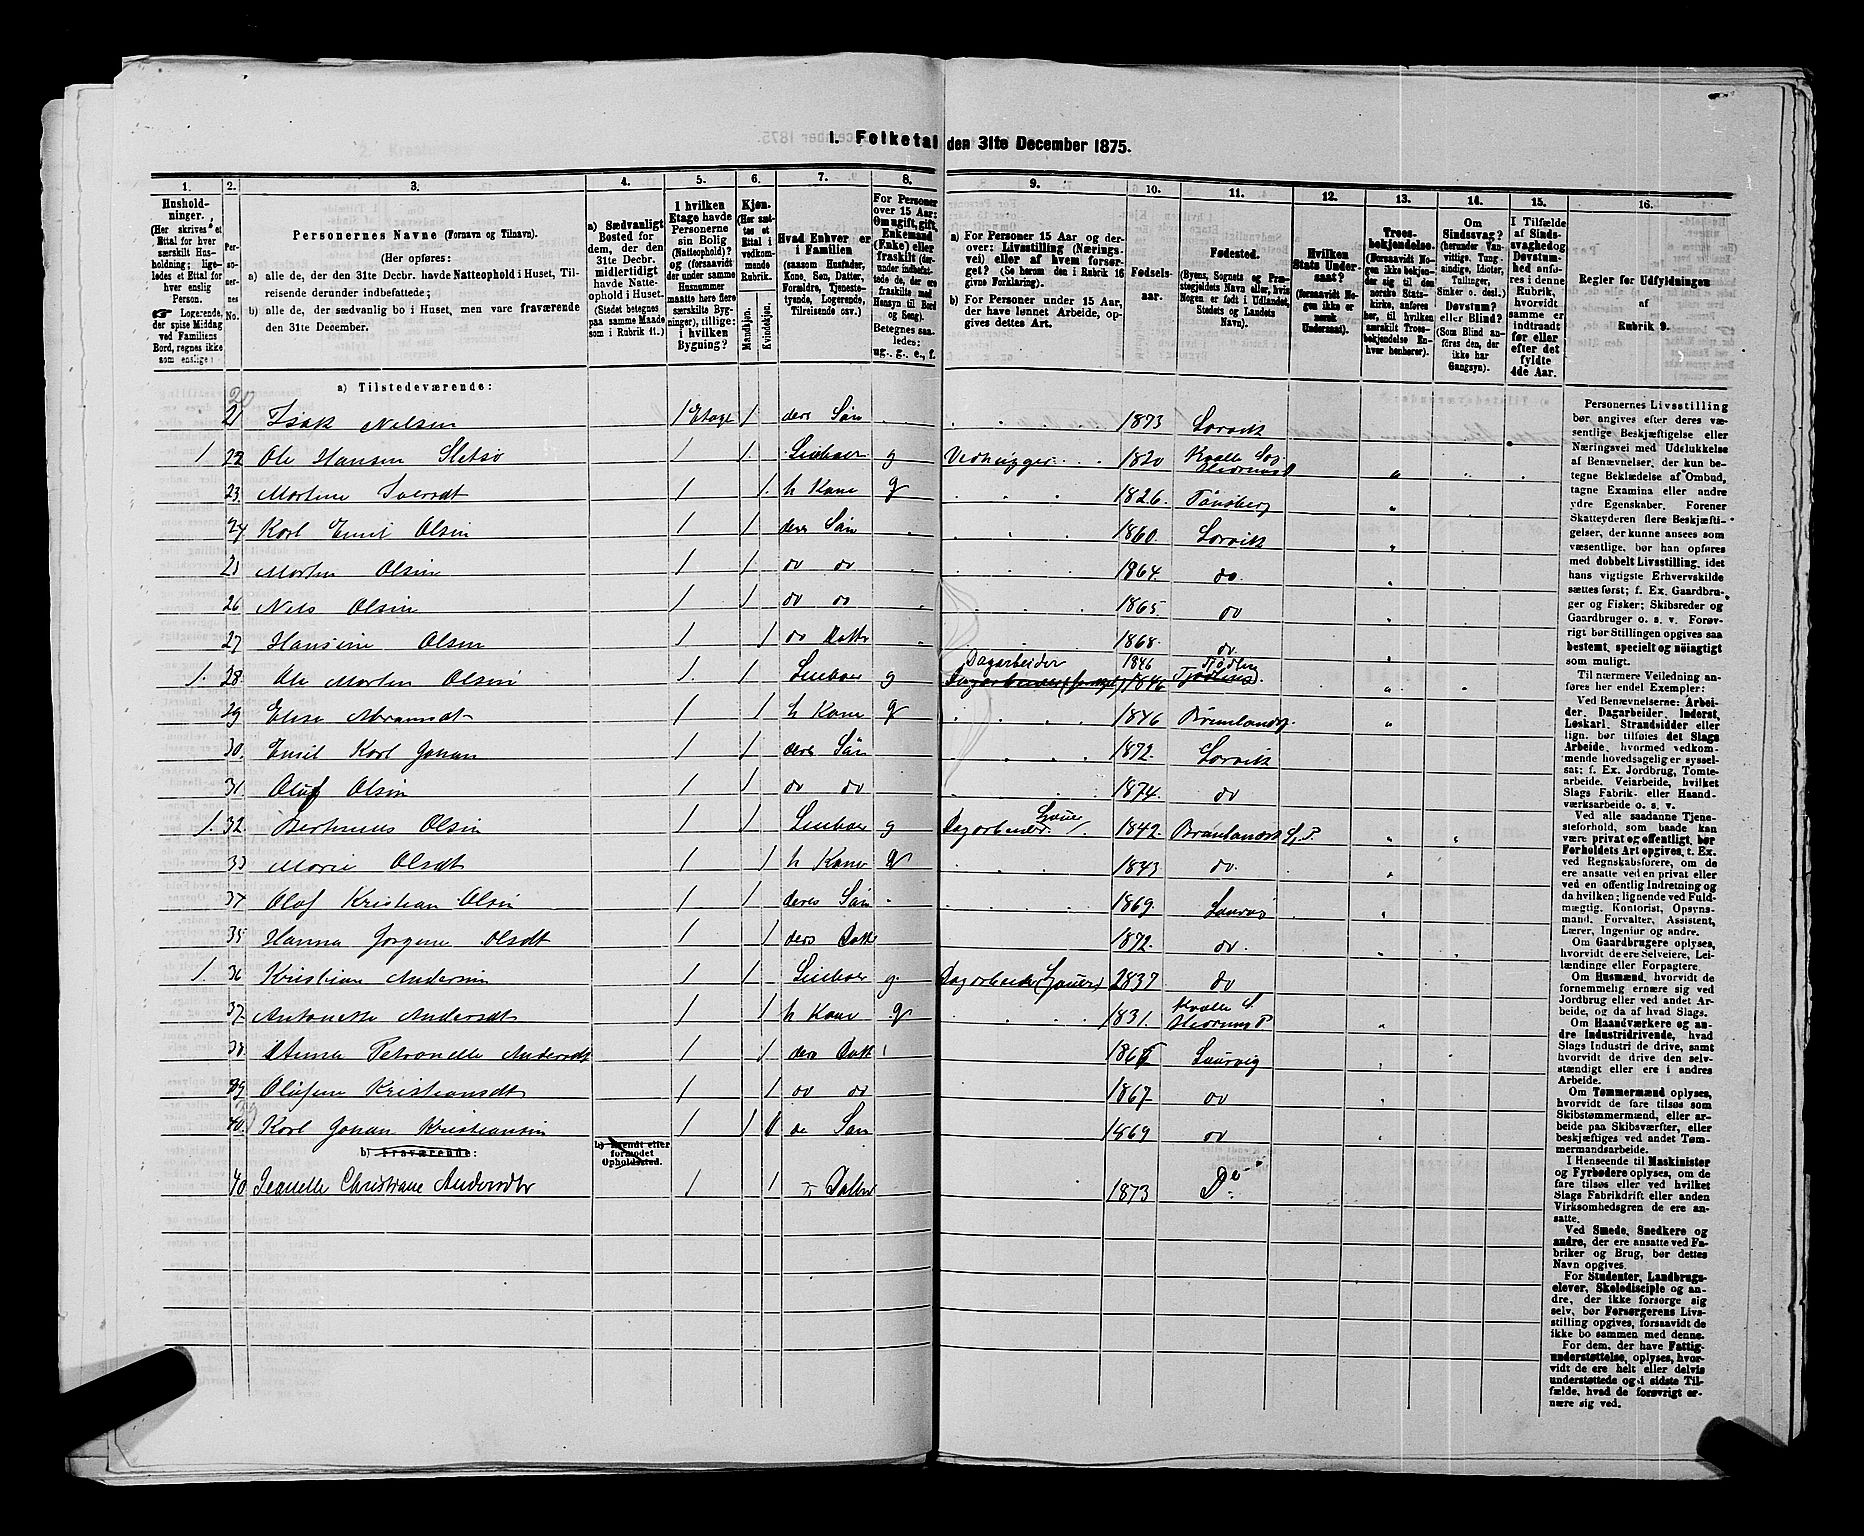 1. Folketal den 31te December 1875.
1. 2. 3. 4. 5. 6. 7. 8. 9. 10. 11. 12. 13. 14. 15. 16.
Husholdninger. (Her skrives et Ettal for hver særskilt Husholdning; ligeledes et Ettal for hver enslig Person. ☞ Logerende, der spise Middag ved Familiens Bord, regnes ikke som enslige)
Personernes No.
Personernes Navne (Fornavn og Tilnavn).
(Her opføres:
a) alle de, der den 31te Decbr. havde Natteophold i Huset, Tilreisende derunder indbefattede;
b) alle de, der sædvanlig bo i Huset, men vare fraværende den 31te December.
a) Sædvanligt Bosted for dem, der den 31te Decbr. midlertidigt havde Natteophold i Huset. (Stedet betegnes paa samme Maade som i Rubrik 11.)
I hvilken Etage havde Personerne sin Bolig (Natteophold)? og (forsaavidt der under samme Husnummer maatte høre flere særskilte Bygninger), tillige: i hvilken Bygning?
Kjøn. (Her sættes et Ettal i vedkommende Rubrik.
Mandkjøn. Kvindekjøn.
Hvad Enhver er i Familien (saasom Husfader, Kone, Søn, Datter, Forældre, Tjenestetyende, Logerende, Tilreisende osv.)
For Personer over 15 Aar: Om ugift, gift, Enkemand (Enke) eller fraskilt (derunder indbefattede de, der ere fraskilte med Hensyn til Bord og Seng). Betegnes saaledes: ug., g., e., f.
a) For Personer 15 Aar og derover: Livsstilling (Næringsvei) eller af hvem forsørget? (Se herom den i Rubrik 16 givne Forklaring).
b) For Personer under 15 Aar, der have lønnet Arbeide, opgives dettes Art.
Fødselsaar.
Fødested. (Byens, Sognets og Præstegjeldets Navn eller, hvis Nogen er født i Udlandet, Stedets og Landets Navn).
Hvilken Stats Undersaat? (forsaavidt Nogen ikke er norsk Undersaat).
Troesbekjendelse. (Forsaavidt Nogen ikke bekjender sig til den norske Statskirke, anføres her, til hvilken særskilt Troesbekjendelse Enhver henhører).
Om Sindssvag? (herunder Vanvittige, Tungsindige, Idioter, Tullinger, Sinker o. desl.) Døvstum? eller Blind? (Som Blind anføres den, der ikke har Gangsyn).
I Tilfælde af Sindssvaghed og Døvstumhed anføres i denne Rubrik, hvorvidt samme er indtraadt før eller efter det fyldte 4de Aar.
Regler for Udfyldningen af Rubrik 9.
a) Tilstedeværende:
20
21 Isak Nilsen 1 Etage 1 ders Søn 1873 Lorvik
1 22 Ole Hansen Sletsø 1 1 Leieboer g Vedhugger 1820 Kvelle Sog Hedrum
23. Mortine Iversdt 1 1 h Kone g 1826. Tønsberg
24 Karl Emil Olsen 1 1 ders Søn 1860 Lorvik
25 Morten Olsen 1 1 do do 1864. do.
26 Nils Olsen 1 1 do do 1865. do
27 Hansine Olsen 1 1 do Dattr 1868. do
1. 28 Ole Morten Olsen 1. 1 Leieboer g Dagarbeider 1846 Tjødling
29 Elise Abramsdt 1 1 h Kone g 1846 Brunlands.
30. Emil Karl Johan 1 1 ders Søn 1872. Lorvik
31 Oluf Olsen 1 1 do do 1874. do
1. 32 Bertinius Olsen 1 1 Leieboer g Dagarbeider 1842. Brunlands S. P.
33 Marie Olsdt 1 1 h Kone g 1843 do.
34 Olaf Kristian Olsen 1 1 deres Søn 1869 Laurvi
35 Hanna Jorgine Olsdt 1 1 ders Datt 1872. do.
1. 36 Kristian Andersen 1 1 Leieboer g. Dagarbeider 2837 do
37. Antonette Andersdt 1 1 h Kone g 1831. Kvelle S. Hedrums P
38 Anna Petronelle Andersdt 1 1 ders Datt 186 Laurvig
39 Olufine Kristiansdt 1 1 do do 1867 do
40 Karl Johan Kristiansen 1 1 de Søn 1869 do
b) Fraværende:
b) Kjendt eller formodet Opholdssted.
40 Jeanelle Christiane Andersdtr 1 1 Datter 1873 Do
Personernes Livsstilling bør angives efter deres væsentlige Beskjæftigelse eller Næringsvei med Udelukkelse af Benævnelser, der kun betegne Beklædelse af Ombud, tagne Examina eller andre ydre Egenskaber. Forener Skatteyderen flere Beskjæftigelser, der kunne ansees som væsentlige, bør han opføres med dobbelt Livsstilling, idet hans vigtigste Erhvervskilde sættes først; f. Ex. Gaardbruger og Fisker; Skibsreder og Gaardbruger o. s. v. Forøvrigt bør Stillingen opgives saa bestemt, specielt og nøiagtigt som muligt.
Til nærmere Veiledning anføres her endel Exempler:
Ved Benævnelserne: Arbeider, Dagarbeider, Inderst, Løskarl, Strandsidder eller lign. bør tilføies det Slags Arbeide, hvormed vedkommende hovedsagelig er sysselsat; f. Ex. Jordbrug, Tomtearbeide, Veiarbeide, hvilket Slags Fabrik- eller Haandværksarbeide o. s. v.
Ved alle saadanne Tjenesteforhold, som baade kan være privat og offentligt, bør Forholdets Art opgives, t. Ex. ved Regnskabsførere, om de ere ansatte ved en privat eller ved en offentlig Indretning og da hvilken; lignende ved Fuldmægtig, Kontorist, Opsynsmand, Forvalter, Assistent, Lærer, Ingeniør og andre.
Om Gaardbrugere oplyses, hvorvidt de ere Selveiere, Leilændinge eller Forpagtere.
Om Husmænd, hvorvidt de fornemmelig ernære sig ved Jordbrug eller ved andet Arbeide, og da af hvad Slags.
Om Haandværkere og andre Industridrivende, hvad Slags Industri de drive, samt hvorvidt de drive den selvstændigt eller ere i andres Arbeide.
Om Tømmermænd oplyses, hvorvidt de fare tilsøs som Skibstømmermænd, eller arbeide paa Skibsværfter, eller beskjæftiges ved andet Tømmermandsarbeide.
I Henseende til Maskinister og Fyrbødere oplyses, om de fare tilsøs eller ved hvilket Slags Fabrikdrift eller anden Virksomhedsgren de ere ansatte.
Ved Smede, Snedkere og andre, der ere ansatte ved Fabriker og Brug, bør dettes Navn opgives.
For Studenter, Landbrugselever, Skoledisciple og andre, der ikke forsørge sig selv, bør Forsørgerens Livsstilling opgives, forsaavidt de ikke bo sammen med denne.
For dem, der have Fattigunderstøttelse, oplyses, hvorvidt de ere helt eller delvis understøttede og i sidste Tilfælde, hvad de forøvrigt ernære sig ved.